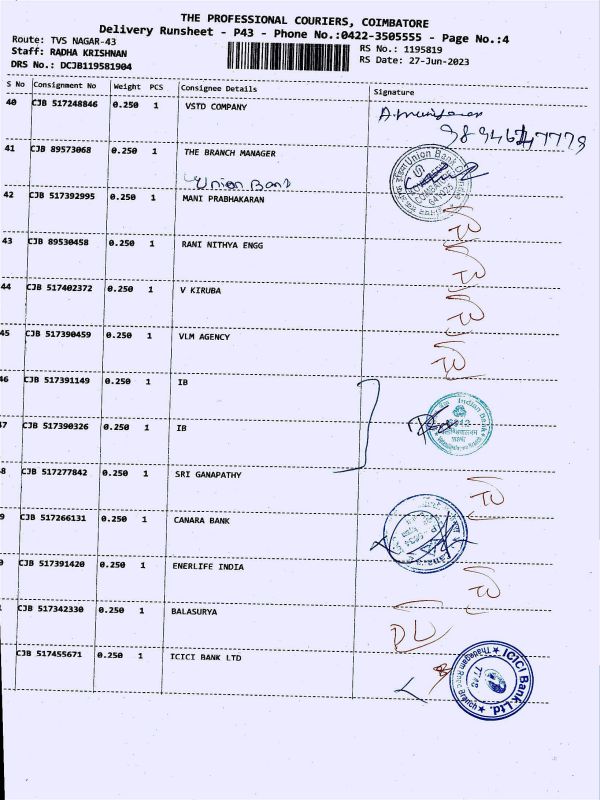 THE PROFESSIONAL COURIERS, COIMBATORE
Delivery Runsheet - P43 - Phone No.:0422-3505555 - Page No.:4
Route: TVS NAGAR-43 RS No.: 1195819
Staff: RADHA KRISHNAN RS Date: 27-Jun-2023
DRS No.: DCJB119581904
S No Consignment No Weight PCS Consignee Details Signature
40 CJB 517248846 0.250 1 VSTD COMPANY
41 CJB 89573068 0.250 1 THE BRANCH MANAGER Union Bank
Union Bank
42 CJB 517392995 0.250 1 MANI PRABHAKARAN
43 CJB 89530458 0.250 1 RANI NITHYA ENGG
44 CJB 517402372 0.250 1 V KIRUBA
45 CJB 517390459 0.250 1 VLM AGENCY
46 CJB 517391149 0.250 1 IB Indian Bank
47 CJB 517390326 0.250 1 IB
8 CJB 517277842 0.250 1 SRI GANAPATHY
9 CJB 517266131 0.250 1 CANARA BANK
0 CJB 517391420 0.250 1 ENERLIFE INDIA
CJB 517342330 0.250 1 BALASURYA DL
CJB 517455671 0.250 1 ICICI BANK LTD ICICI Bank Ltd.